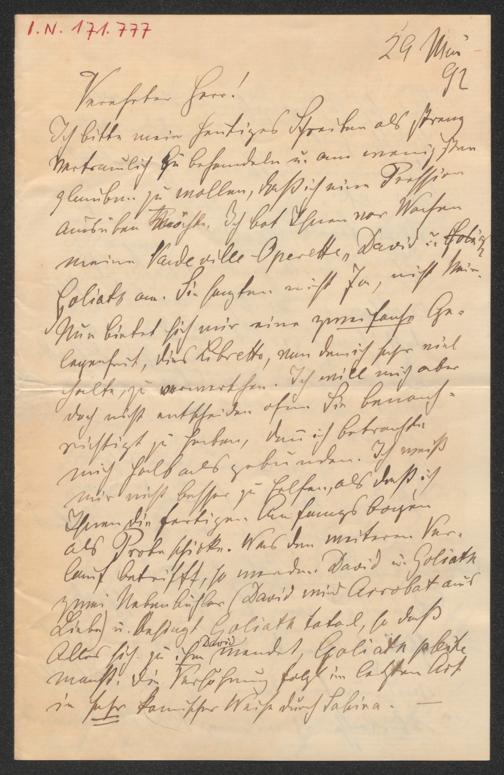 I.N. 171.777
29 Mai
92
Verehrter Herr!
Ich bitte mein heutiges Schreiben als streng
vertraulich zu behandeln u. am wenigsten
glauben zu wollen, daß ich eine Pression
ausüben möchte. Ich bot Ihnen vor Wochen
meine Vaudeville-Operette „David u.
Goliath an. Sie sagten nicht Ja, nicht Nein.
Nun bietet sich mir eine zweifache Ge-
legenheit, dies Libretto, von dem ich sehr viel
halte, zu verwerthen. Ich will mich aber
doch nicht entscheiden ohne Sie benach-
richtigt zu haben, denn ich betrachte
mich halb als gebunden. Ich weiß
mir nicht besser zu helfen, als daß ich
Ihnen die fertigen Anfangsbogen
als Probe schicke. Was den weiteren Ver-
lauf betrifft, so werden David u. Goliath
zwei Nebenbuhler, David wird Acrobat aus
Liebe u. besiegt Goliath total, so daß
Alles sich zu David wendet, Goliath pleite
macht. Die Versöhnung folgt im letzten Act
in sehr komischer Weise durch Sabina. —